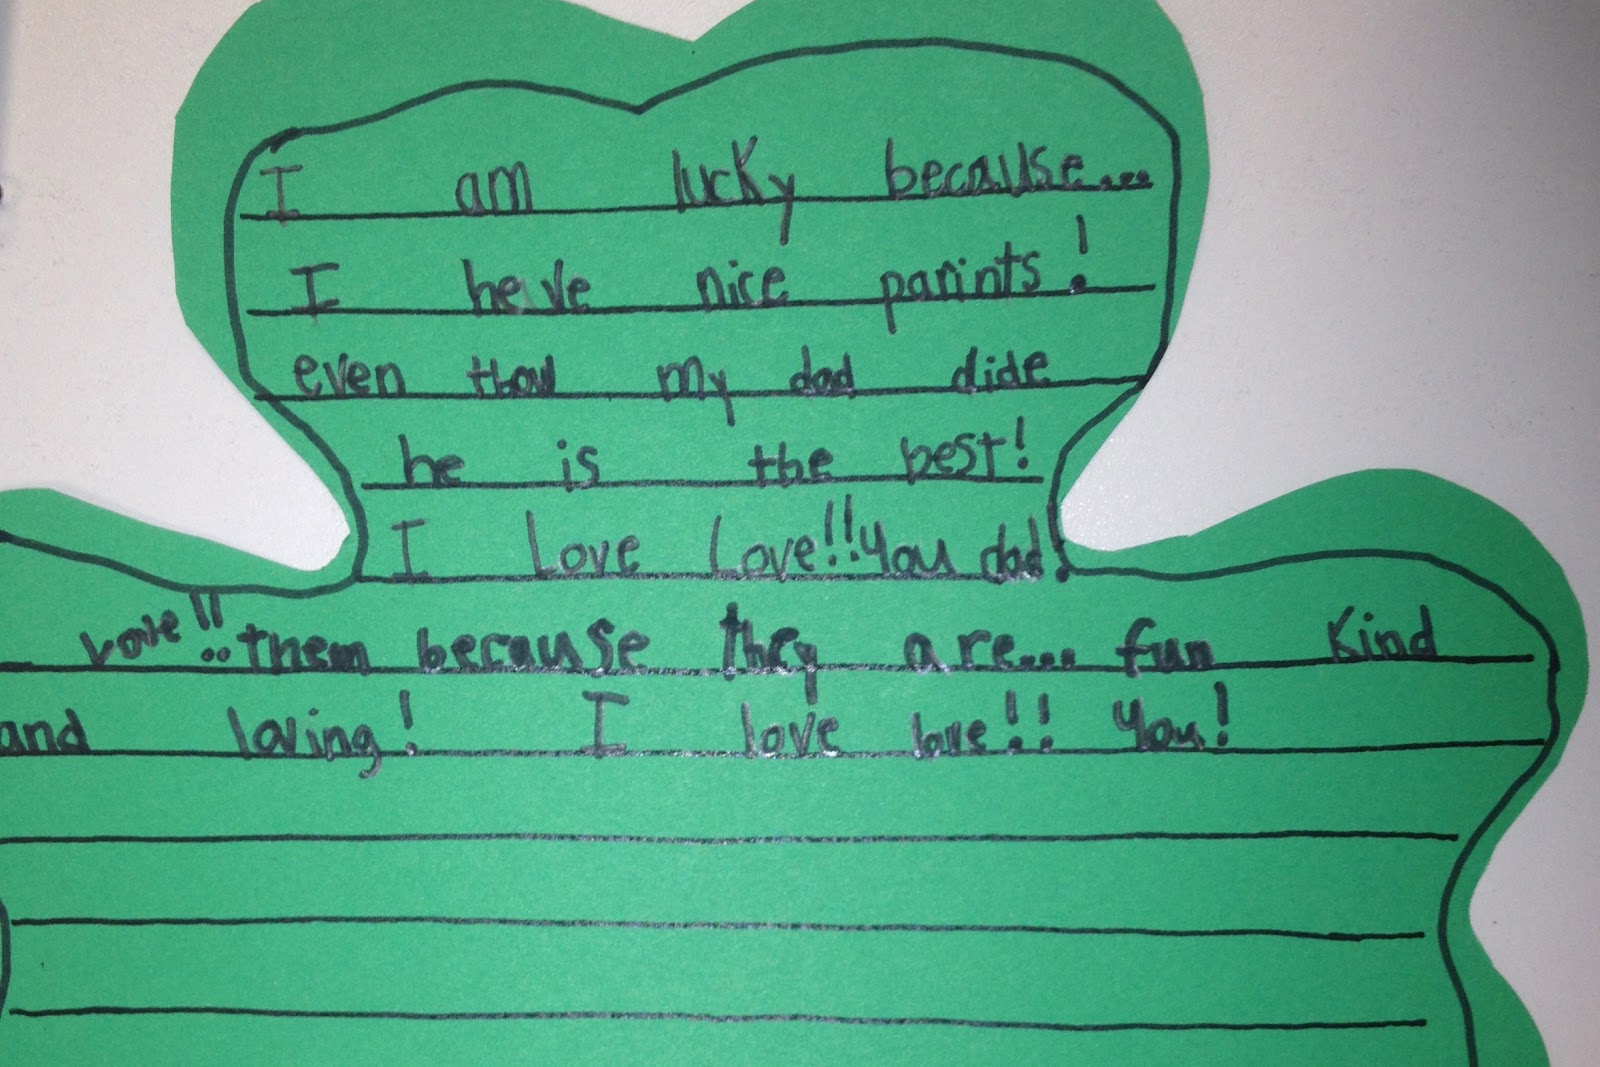 I am lucky because...
I heve nice parints!
even thow my dad dide
he is the best!
I Love Love!! you dad!
Love!! them because they are... fun kind
and loving! I love love!! you!